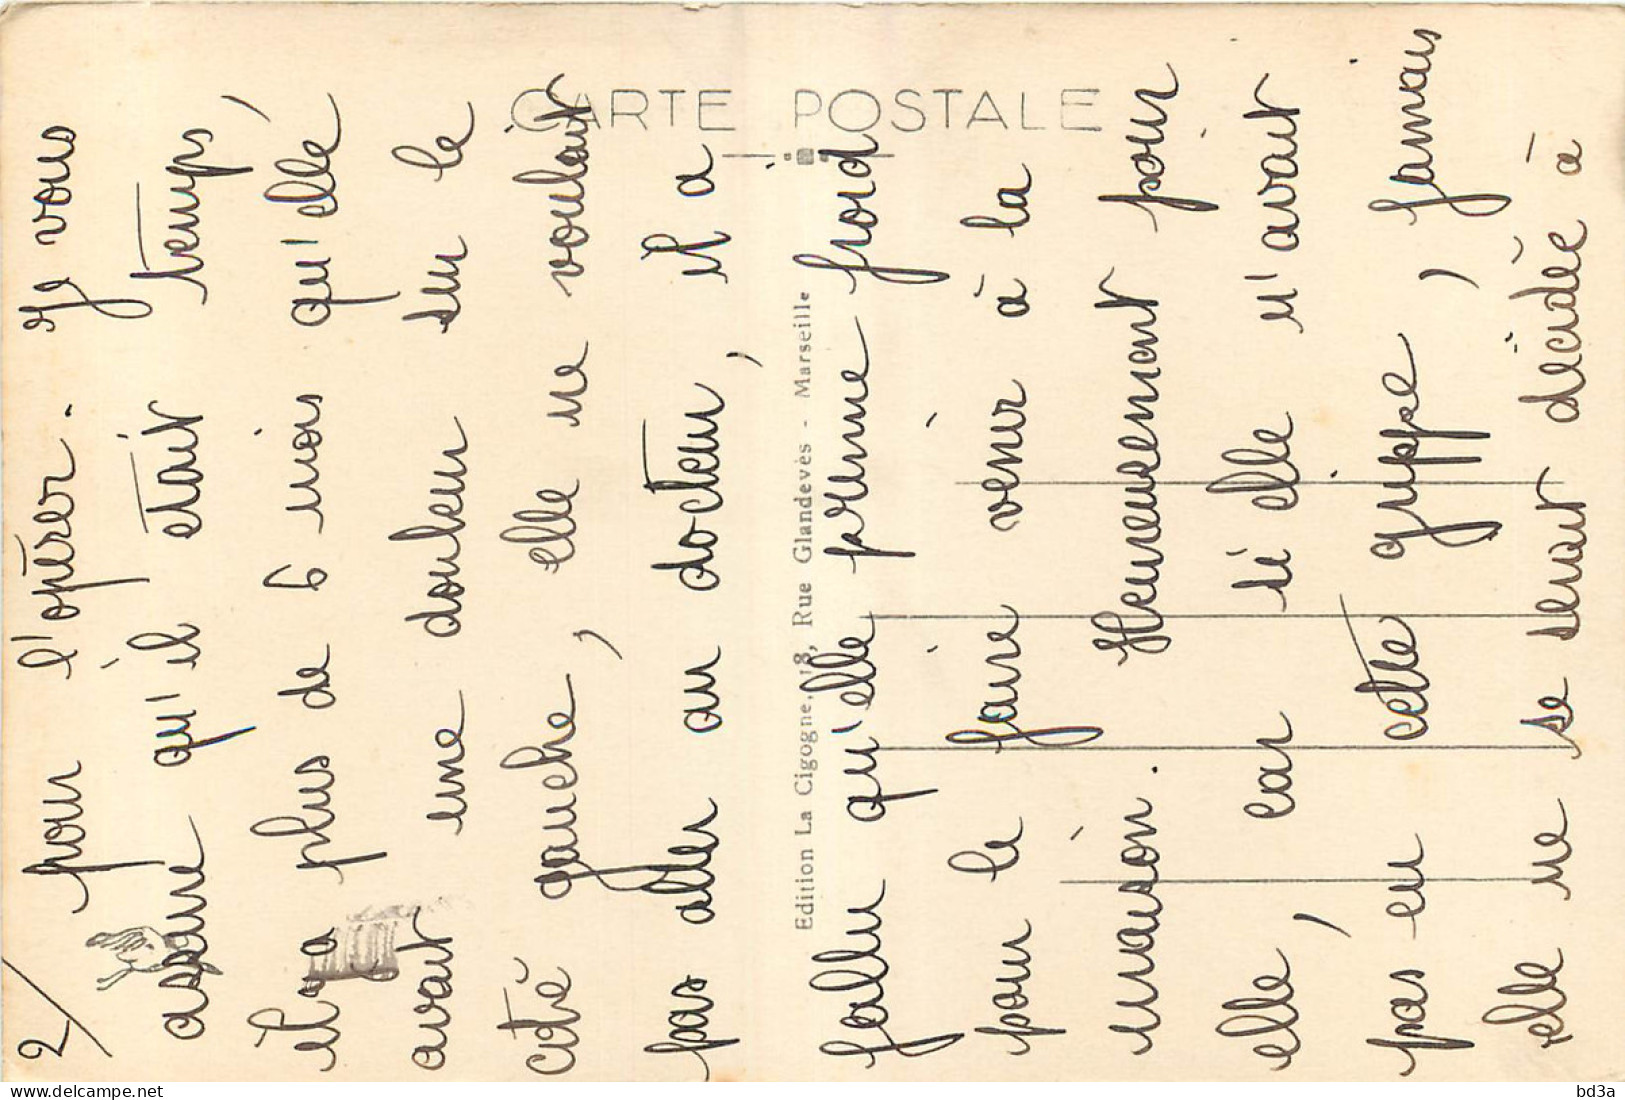 2/ pour l'opérer. Je vous
assure qu'il était temps,
il y a plus de 6 mois qu'elle
avait une douleur sur le
côté gauche, elle ne voulait
pas aller au docteur, il a
fallu qu'elle prenne froid
pour le faire venir à la
maison. Heureusement pour
elle, car si elle n'avait
pas eu cette grippe, jamais
elle ne se serait décidée à
CARTE POSTALE
Edition La Cigogne, 18, Rue Glandevès - Marseille
Delcampe.net
bd3a